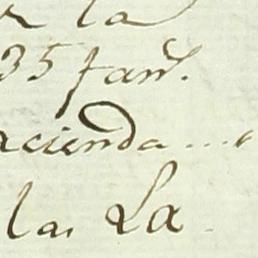 la
35 fan.
acienda...
la, La